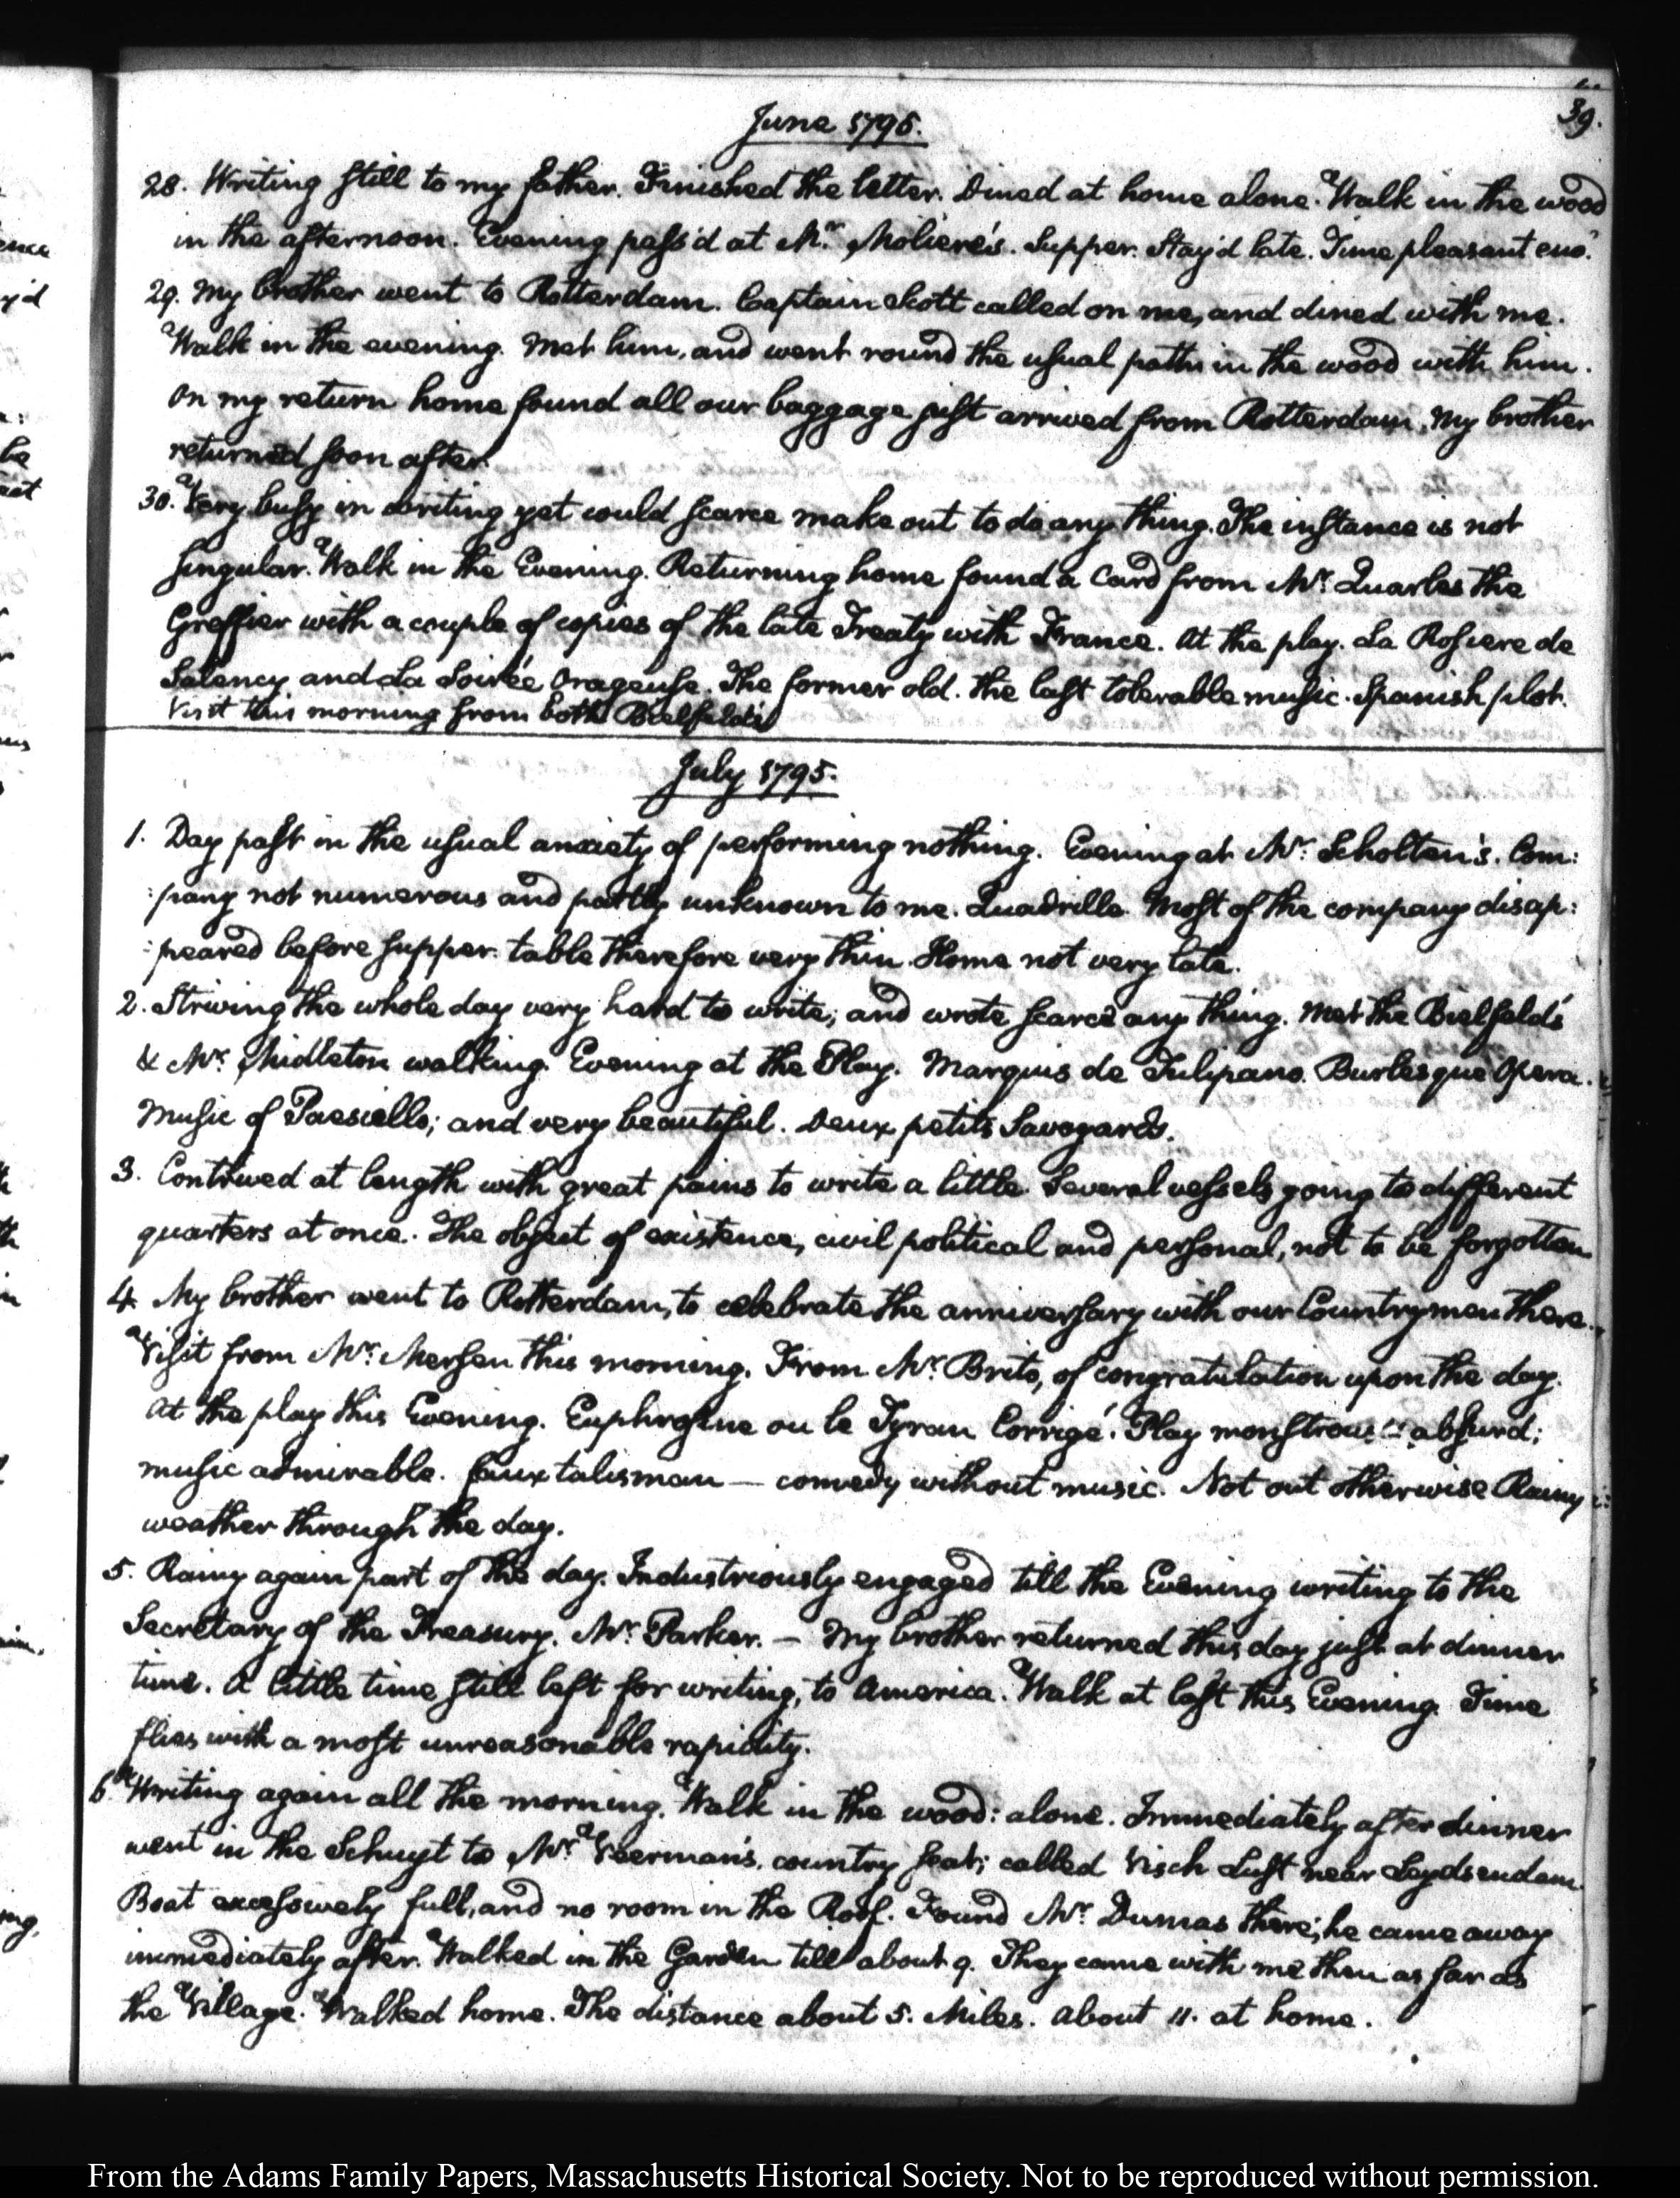 39.
June 1795.
28. Writing still to my father. Finished the letter. Dined at home alone. Walk in the wood
in the afternoon. Evening pass'd at Mr. Molière's. Supper. Stay'd late. Time pleasant eno'.
29. My brother went to Rotterdam. Captain Scott called on me, and dined with me.
Walk in the evening. Met him, and went round the usual paths in the wood with him.
On my return home found all our baggage just arrived from Rotterdam. My brother
returned soon after.
30. Very busy in writing yet could scarce make out to do any thing. The instance is not
singular. Walk in the Evening. Returning home found a Card from Mr. Quarles the
Greffier with a couple of copies of the late Treaty with France. At the play. La Rosiere de
Salency and La Soirée Orageuse. The former old. The last tolerable music. Spanish plot.
Visit this morning from both Bielfeld's
July 1795.
1. Day past in the usual anxiety of performing nothing. Evening at Mr. Scholten's. Com:
:pany not numerous and partly unknown to me. Quadrille. Most of the company disap:
:peared before supper. table therefore very thin. Home not very late.
2. Striving the whole day very hard to write; and wrote scarce any thing. Met the Bielfeld's
& Mr. Midleton walking. Evening at the Play. Marquis de Tulipano. Burlesque Opera.
Music of Paesiello; and very beautiful. Deux petits Savoyards.
3. Contrived at length with great pains to write a little. Several vessels going to different
quarters at once. The object of existence, civil political and personal, not to be forgotten
4. My brother went to Rotterdam, to celebrate the anniversary with our Countrymen there.
Visit from Mr. Mersen this morning. From Mr. Brito, of congratulation upon the day.
At the play this Evening. Euphrosine ou le Tyran Corrigé. Play monstrous absurd;
music admirable. faux talisman — comedy without music. Not out otherwise Rainy
weather through the day.
5. Rainy again part of the day. Industriously engaged till the Evening writing to the
Secretary of the Treasury. Mr. Parker. — My brother returned this day just at dinner
time. A little time still left for writing, to America. Walk at last this Evening. Time
flies with a most unreasonable rapidity.
6. Writing again all the morning. Walk in the wood: alone. Immediately after dinner
went in the Schuyt to Mr. Veerman's, country seat; called Visch Lust near Leydsendam.
Boat excessively full, and no room in the Roof. Found Mr. Dumas there; he came away
immediately after. Walked in the Garden till about 9. They came with me then as far as
the Village. Walked home. The distance about 5. Miles. About 11. at home.
From the Adams Family Papers, Massachusetts Historical Society. Not to be reproduced without permission.